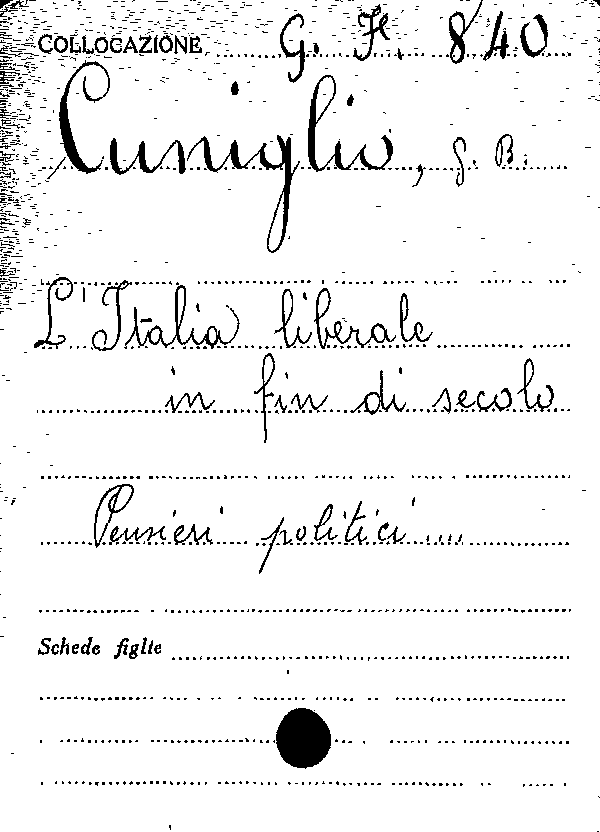 COLLOCAZIONE G. F. 840
Cuniglio, G. B.
L'Italia liberale
in fin di secolo
Pensieri politici....
Schede figlie